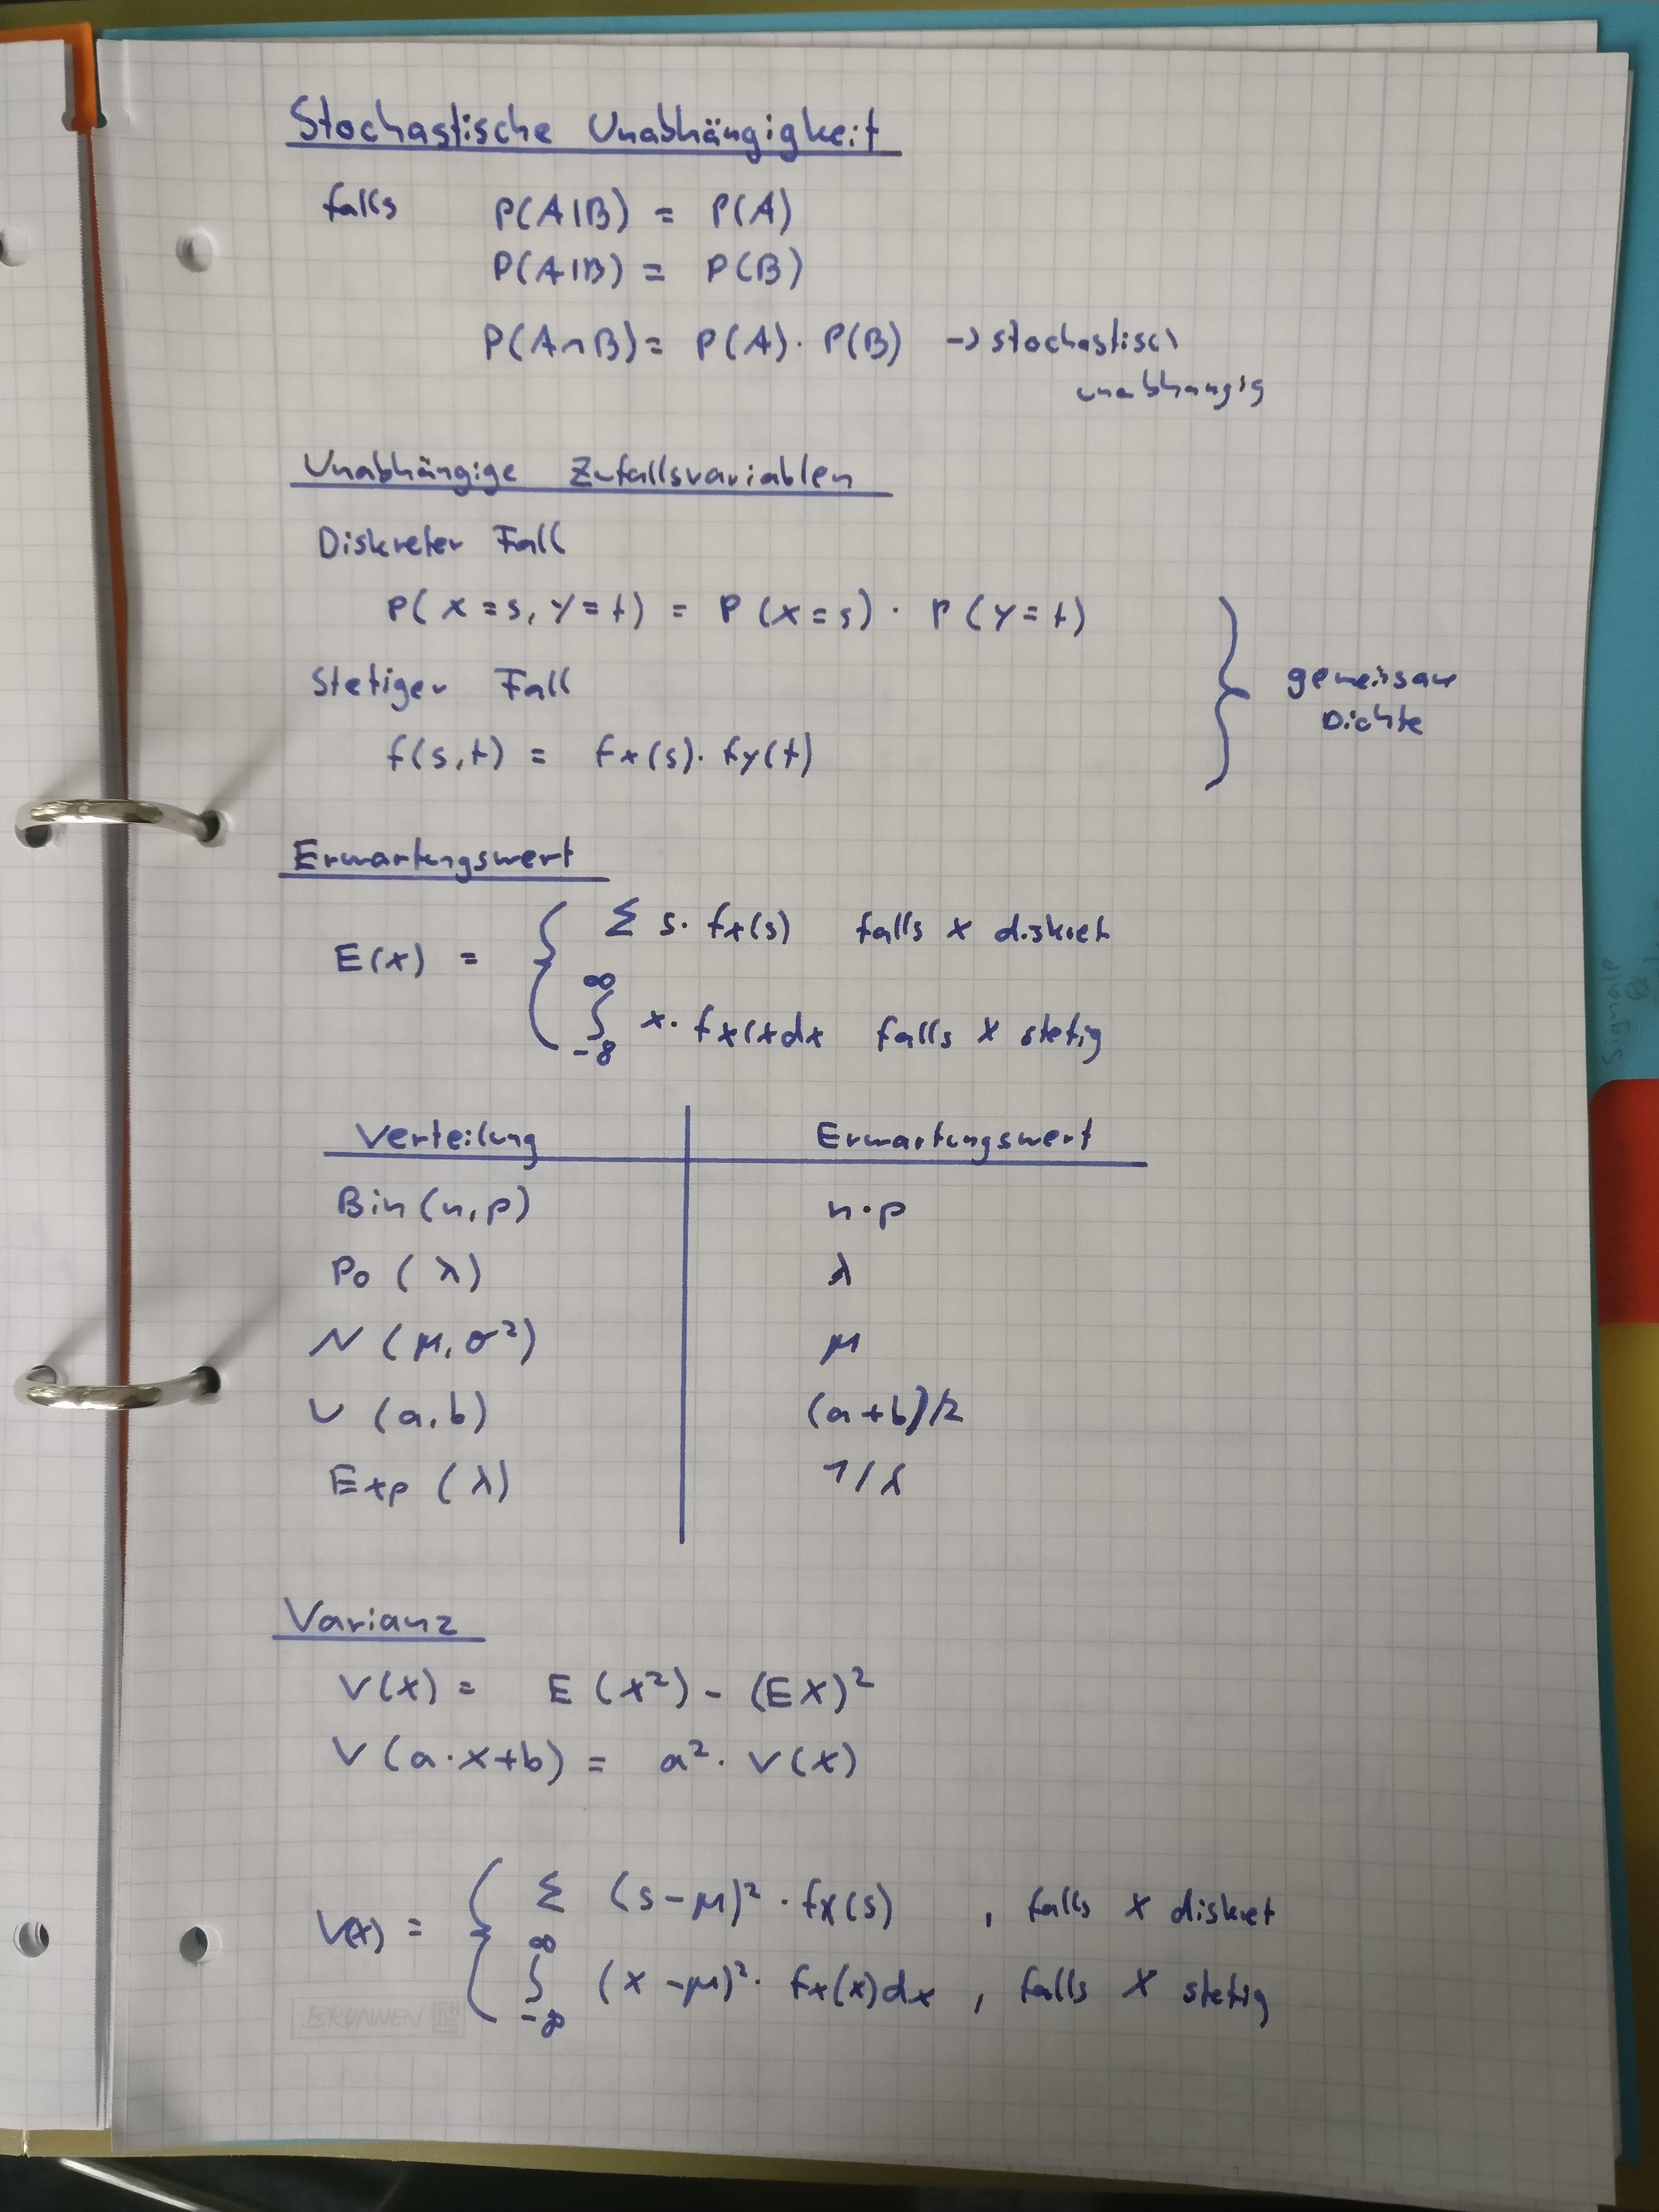 Stochastische Unabhängigkeit
falls P(A|B) = P(A)
P(A|B) = P(B)
P(A∩B) = P(A) · P(B) → stochastisch
unabhängig
Unabhängige Zufallsvariablen
Diskreter Fall
P(X=s, Y=t) = P(X=s) · P(Y=t)
Stetiger Fall
gemeinsame
Dichte
f(s,t) = fx(s) · fy(t)
Erwartungswert
E(X) = { Σ s · fx(s) falls X diskret
∞
∫ x · fx(x dx falls X stetig
-∞
Verteilung Erwartungswert
Bin(n,p) n·p
Po(λ) λ
N(μ,σ²) μ
U(a,b) (a+b)/2
Exp(λ) 1/λ
Varianz
V(X) = E(X²) - (EX)²
V(a·X+b) = a² · V(X)
V(X) = { Σ (s-μ)² · fx(s) , falls X diskret
∞
∫ (x-μ)² · fx(x)dx , falls X stetig
-∞
BRUNNEN
Signale
&